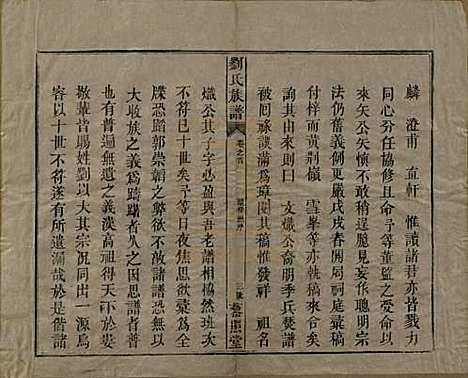 麟 澄甫 直軒 惟讀諸君亦皆戮力
同心分任協修且命予等董監之司命予
來矣公矢慎不敢稍逞臆見妄亂聰明宗
法仍舊義例更嚴光戊戌春開局祠庭彙稿
付梓而黃荊嶺 雪峯等亦執稿來合矣
詢其由來則曰 文熾公裔朋季氏焚譜
被回祿談滿為璋閱其稿惟發祥 祖名
劉氏族譜
卷之首
三修 藜照堂
熾公其子字必盈與吾老譜相然班次
不符已十世矣予等日夜焦思欲彙為全
牒恐蹈郭崇韜之轍欲不諸譜恐無以
大收族之義為躊躇者久之因思諸譜普
也有普遍無遺之義漢高祖得天下婁
敬輩皆賜姓劉以大其宗况同出一源烏
容以十世不符遂有所遺漏哉於是偕諸